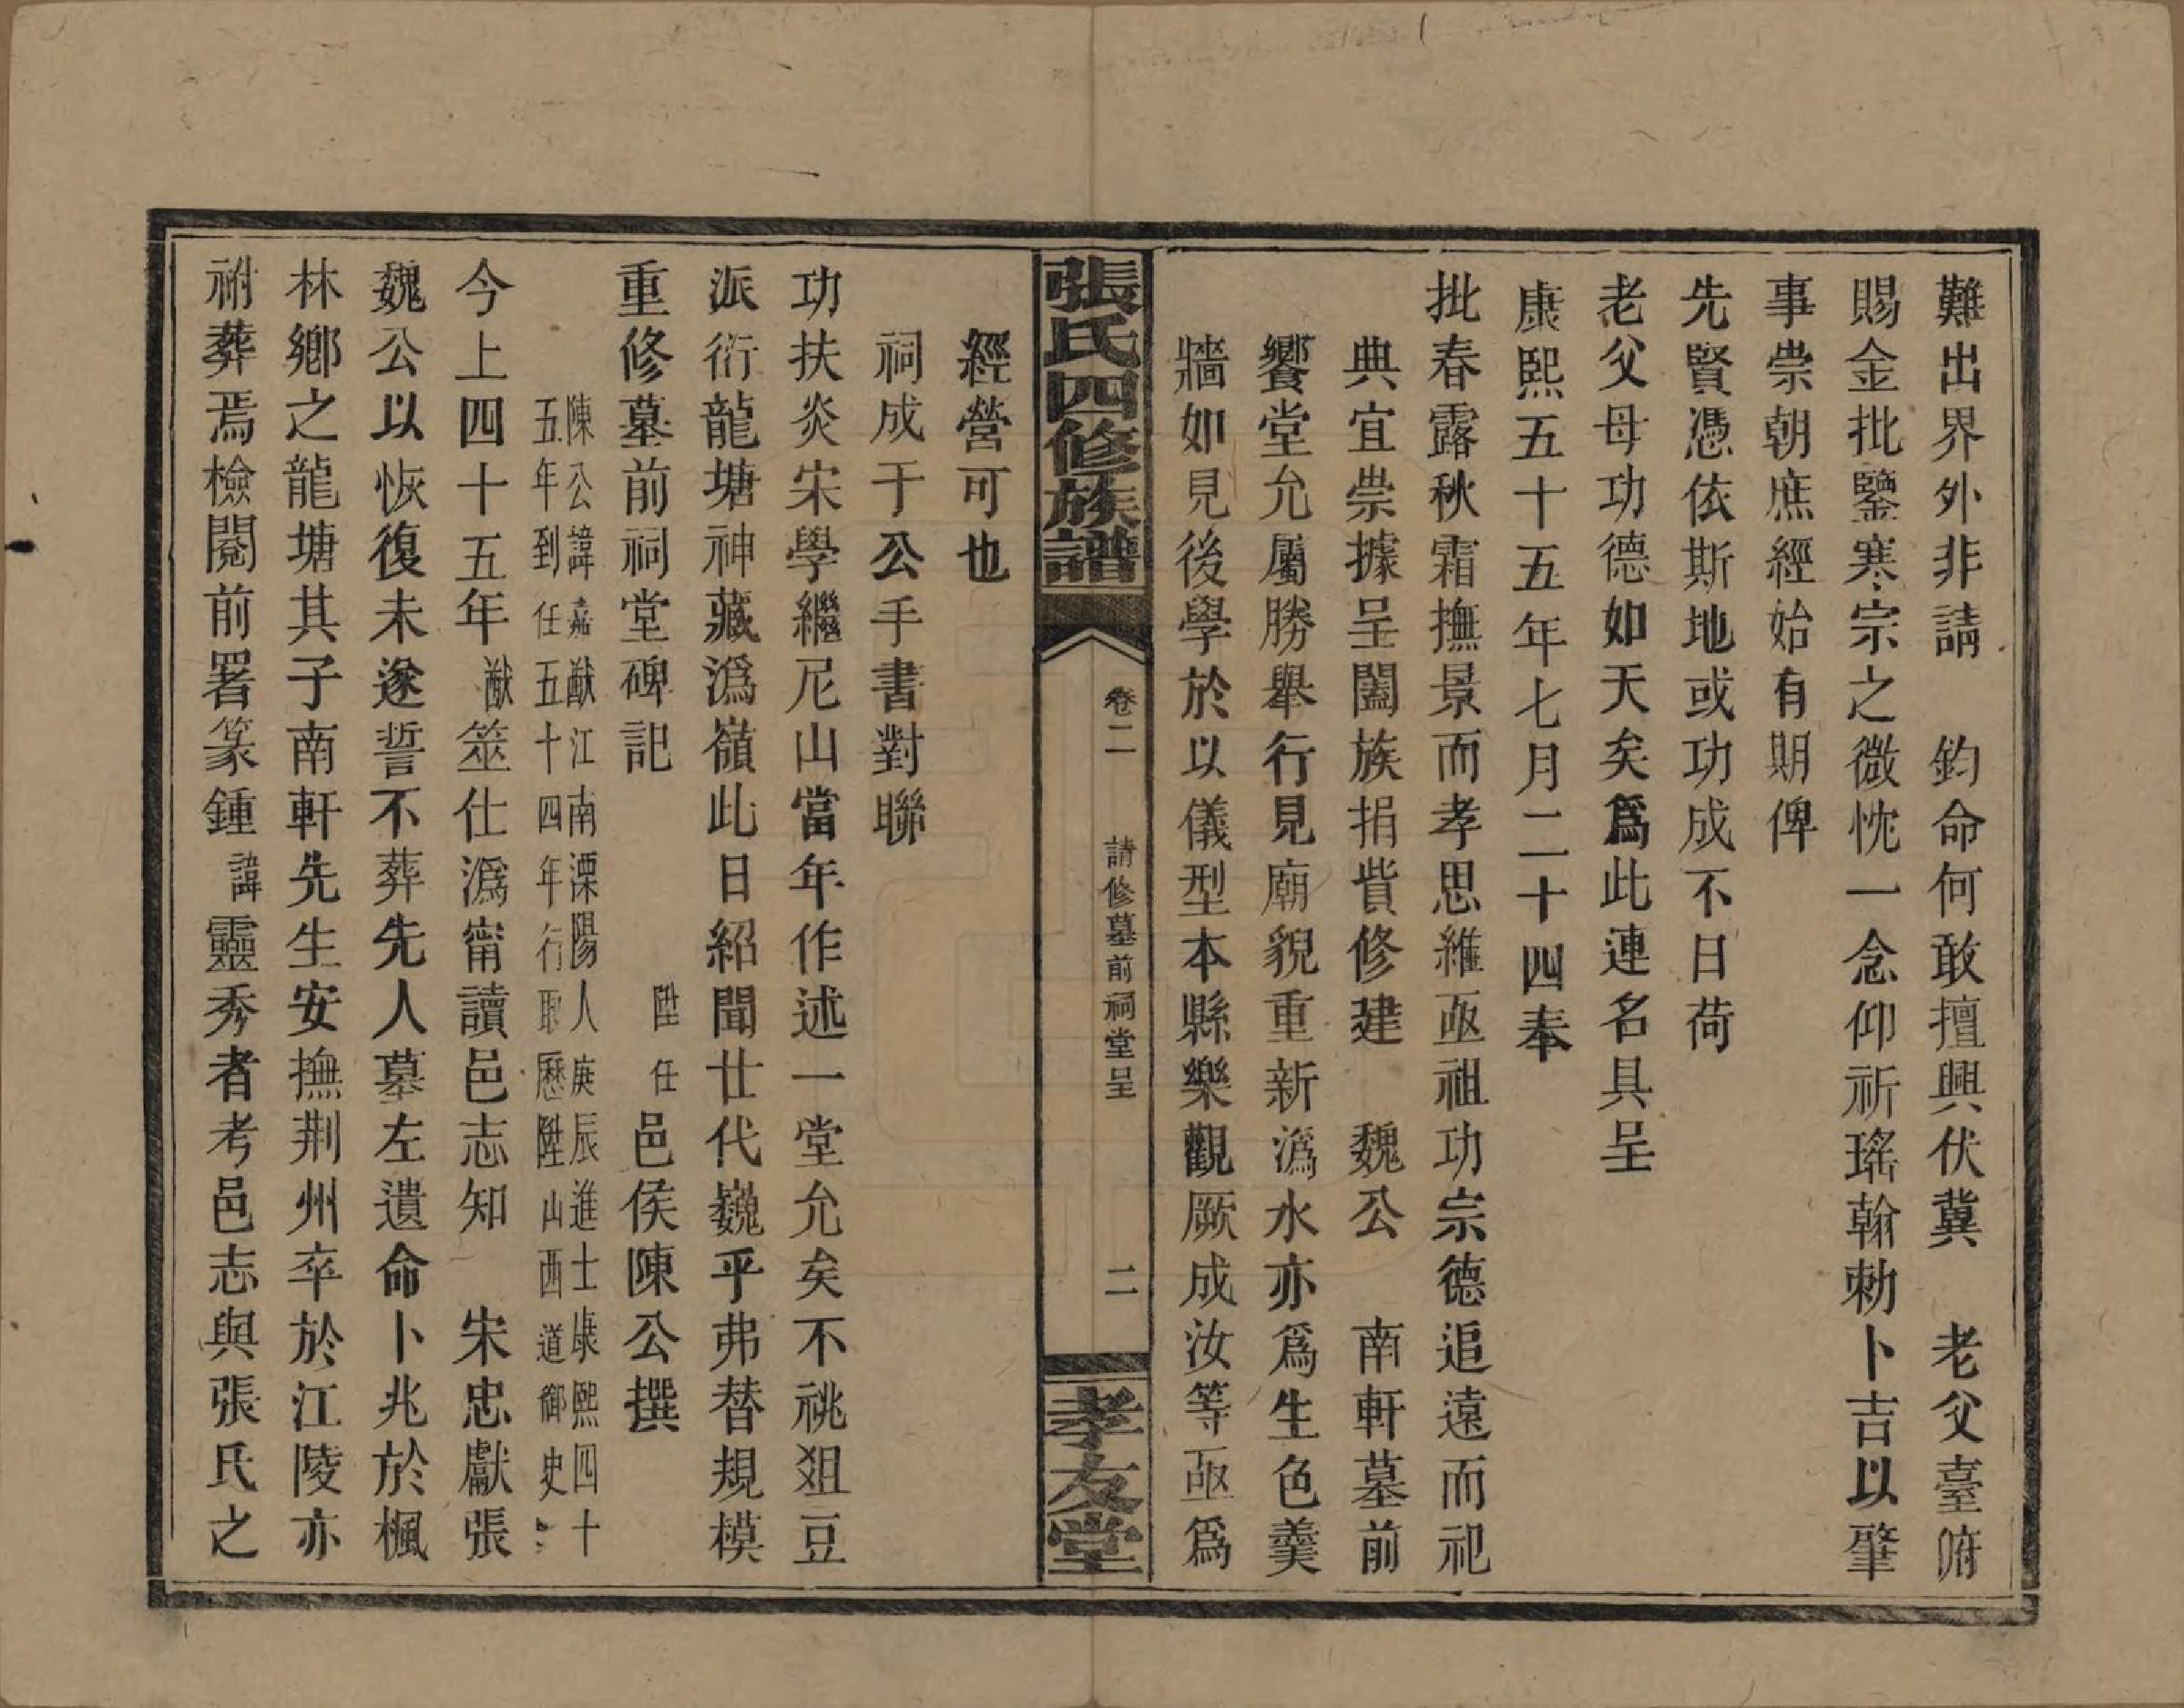 難出界外非請　鈞命何敢擅興伏冀　老父臺俯
賜金批鑒寒宗之微忱一念仰祈瑤翰勅卜吉以肇
事崇朝庶經始有期俾
先賢憑依斯地或功成不日荷
老父母功德如天矣爲此連名具呈
康熙五十五年七月二十四奉
批春露秋霜撫景而孝思維亟祖功宗德追遠而祀
典宜崇據呈闔族捐貲修建　魏公　南軒墓前
饗堂允屬勝舉行見廟貌重新潙水亦爲生色羹
牆如見後學於以儀型本縣樂觀厥成汝等亟爲
張氏四修族譜
卷二
請修墓前祠堂呈
二
孝友堂
經營可也
祠成于公手書對聯
功扶炎宋學繼尼山當年作述一堂允矣不祧俎豆
派衍龍塘神藏潙嶺此日紹聞廿代巍乎弗替規模
重修墓前祠堂碑記
陞任邑侯陳公撰
陳公諱嘉猷江南溧陽人庚辰進士康熙四十
五年到任五十四年行取歷陞山西道御史
今上四十五年猷筮仕潙甯讀邑志知　宋忠獻張
魏公以恢復未遂誓不葬先人墓左遺命卜兆於楓
林鄉之龍塘其子南軒先生安撫荆州卒於江陵亦
祔葬焉檢閱前署篆鍾諱靈秀者考邑志與張氏之